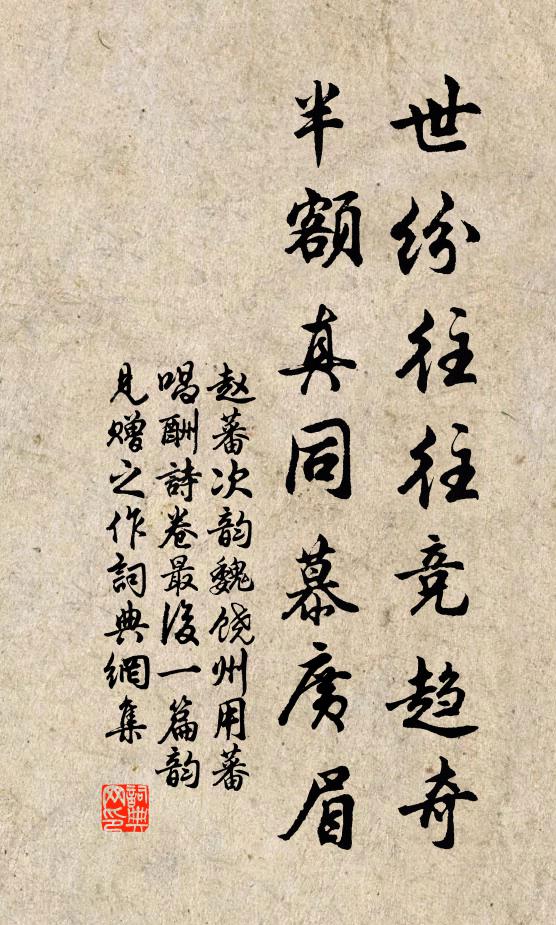 世纷往往竞趋奇
半额真同慕廣眉
赵蕃次韵魏饶州用蕃
唱酬詩卷最後一篇韵
見赠之作詞典網集
詞典
网印